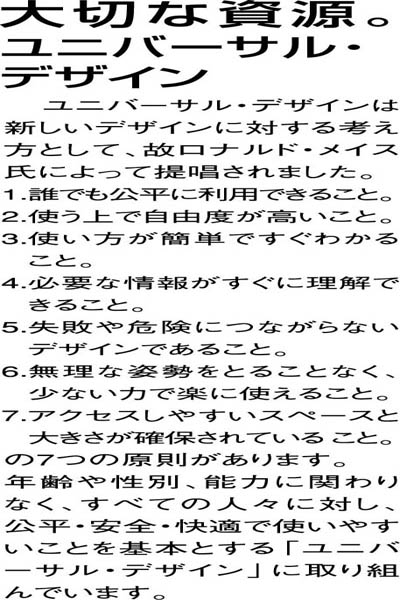 大切な資源。
ユニバーサル・
デザイン
ユニバーサル・デザインは
新しいデザインに対する考え
方として、故ロナルド・メイス
氏によって提唱されました。
1.誰でも公平に利用できること。
2.使う上で自由度が高いこと。
3.使い方が簡単ですぐわかる
こと。
4.必要な情報がすぐに理解で
きること。
5.失敗や危険につながらない
デザインであること。
6.無理な姿勢をとることなく、
少ない力で楽に使えること。
7.アクセスしやすいスペースと
大きさが確保されていること。
の7つの原則があります。
年齢や性別、能力に関わり
なく、すべての人々に対し、
公平・安全・快適で使いやす
いことを基本とする「ユニバ
ーサル・デザイン」に取り組
んでいます。